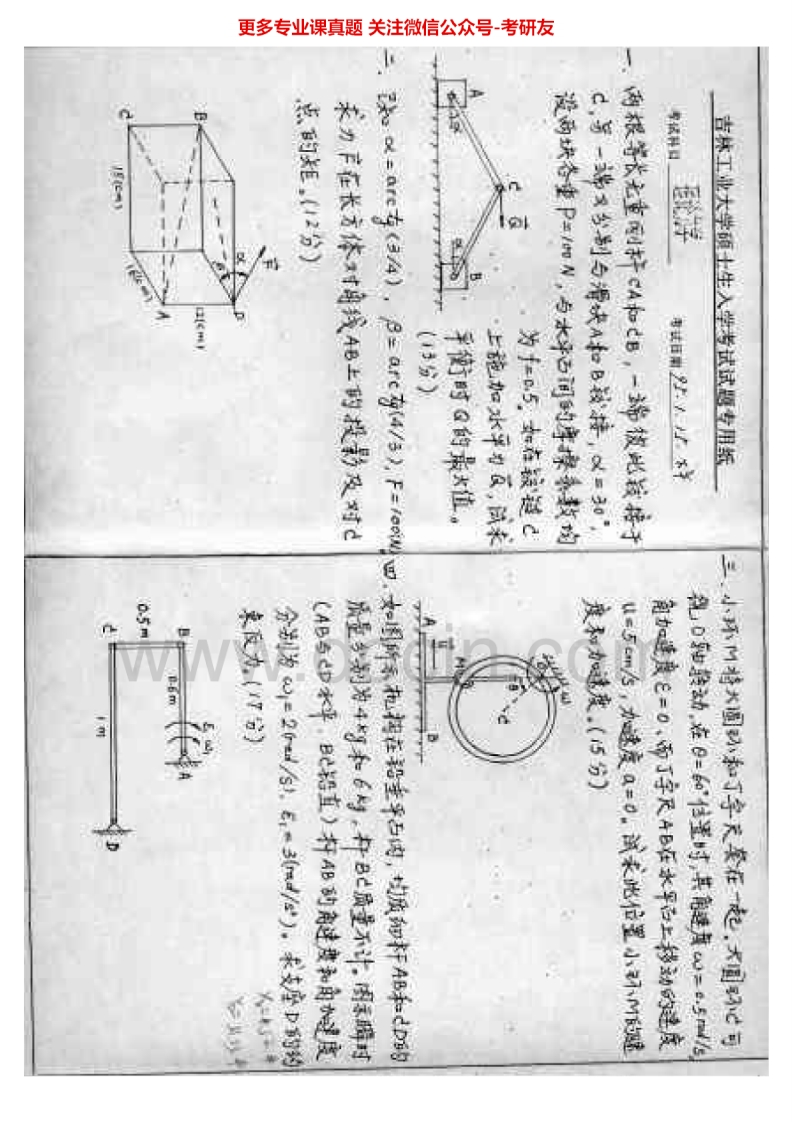 更多专业课真题 关注微信公众号-考研友
吉林工业大学硕士生入学考试试题专用纸
考试科目 理论力学 考试日期 95.1.15.
一. 两根等长无重刚杆CA和CB,一端彼此铰接于
C,另一端又分别与滑块A和B铰接,α=30°,
设两块各重P=100N,与水平面间的摩擦系数均
为f=0.5。如在铰链C
上施加水平力Q,试求
平衡时Q的最大值。
(13分)
A
C
Q
B
二. 已知 α=arctg(3/4), β=arctg(4/3), F=100(N)
求力F在长方体对角线AB上的投影及对C
点的矩。(12分)
B
C
D
F
α
β
A
15(cm)
12(cm)
三. 小环M将大圆环和丁字尺套在一起。大圆环C可
绕O轴转动,在θ=60°位置时,其角速度ω=0.5rad/s,
角加速度ε=0,而丁字尺AB在水平面上移动的速度
u=5cm/s,加速度a=0。试求此位置小环M的速
度和加速度。(15分)
ω
θ
C
M
u
A
B
四. 如图所示机构在铅垂平面内,均质细杆AB和CD的
质量分别为4kg和6kg,杆BC质量不计。图示瞬时
(AB与CD水平,BC铅直)杆AB的角速度和角加速度
分别为ω₁=2(rad/s), ε₁=3(rad/s²)。求支座D的约
束反力。(17分)
B
0.6m
A
0.5m
C
1m
D
www.docin.com